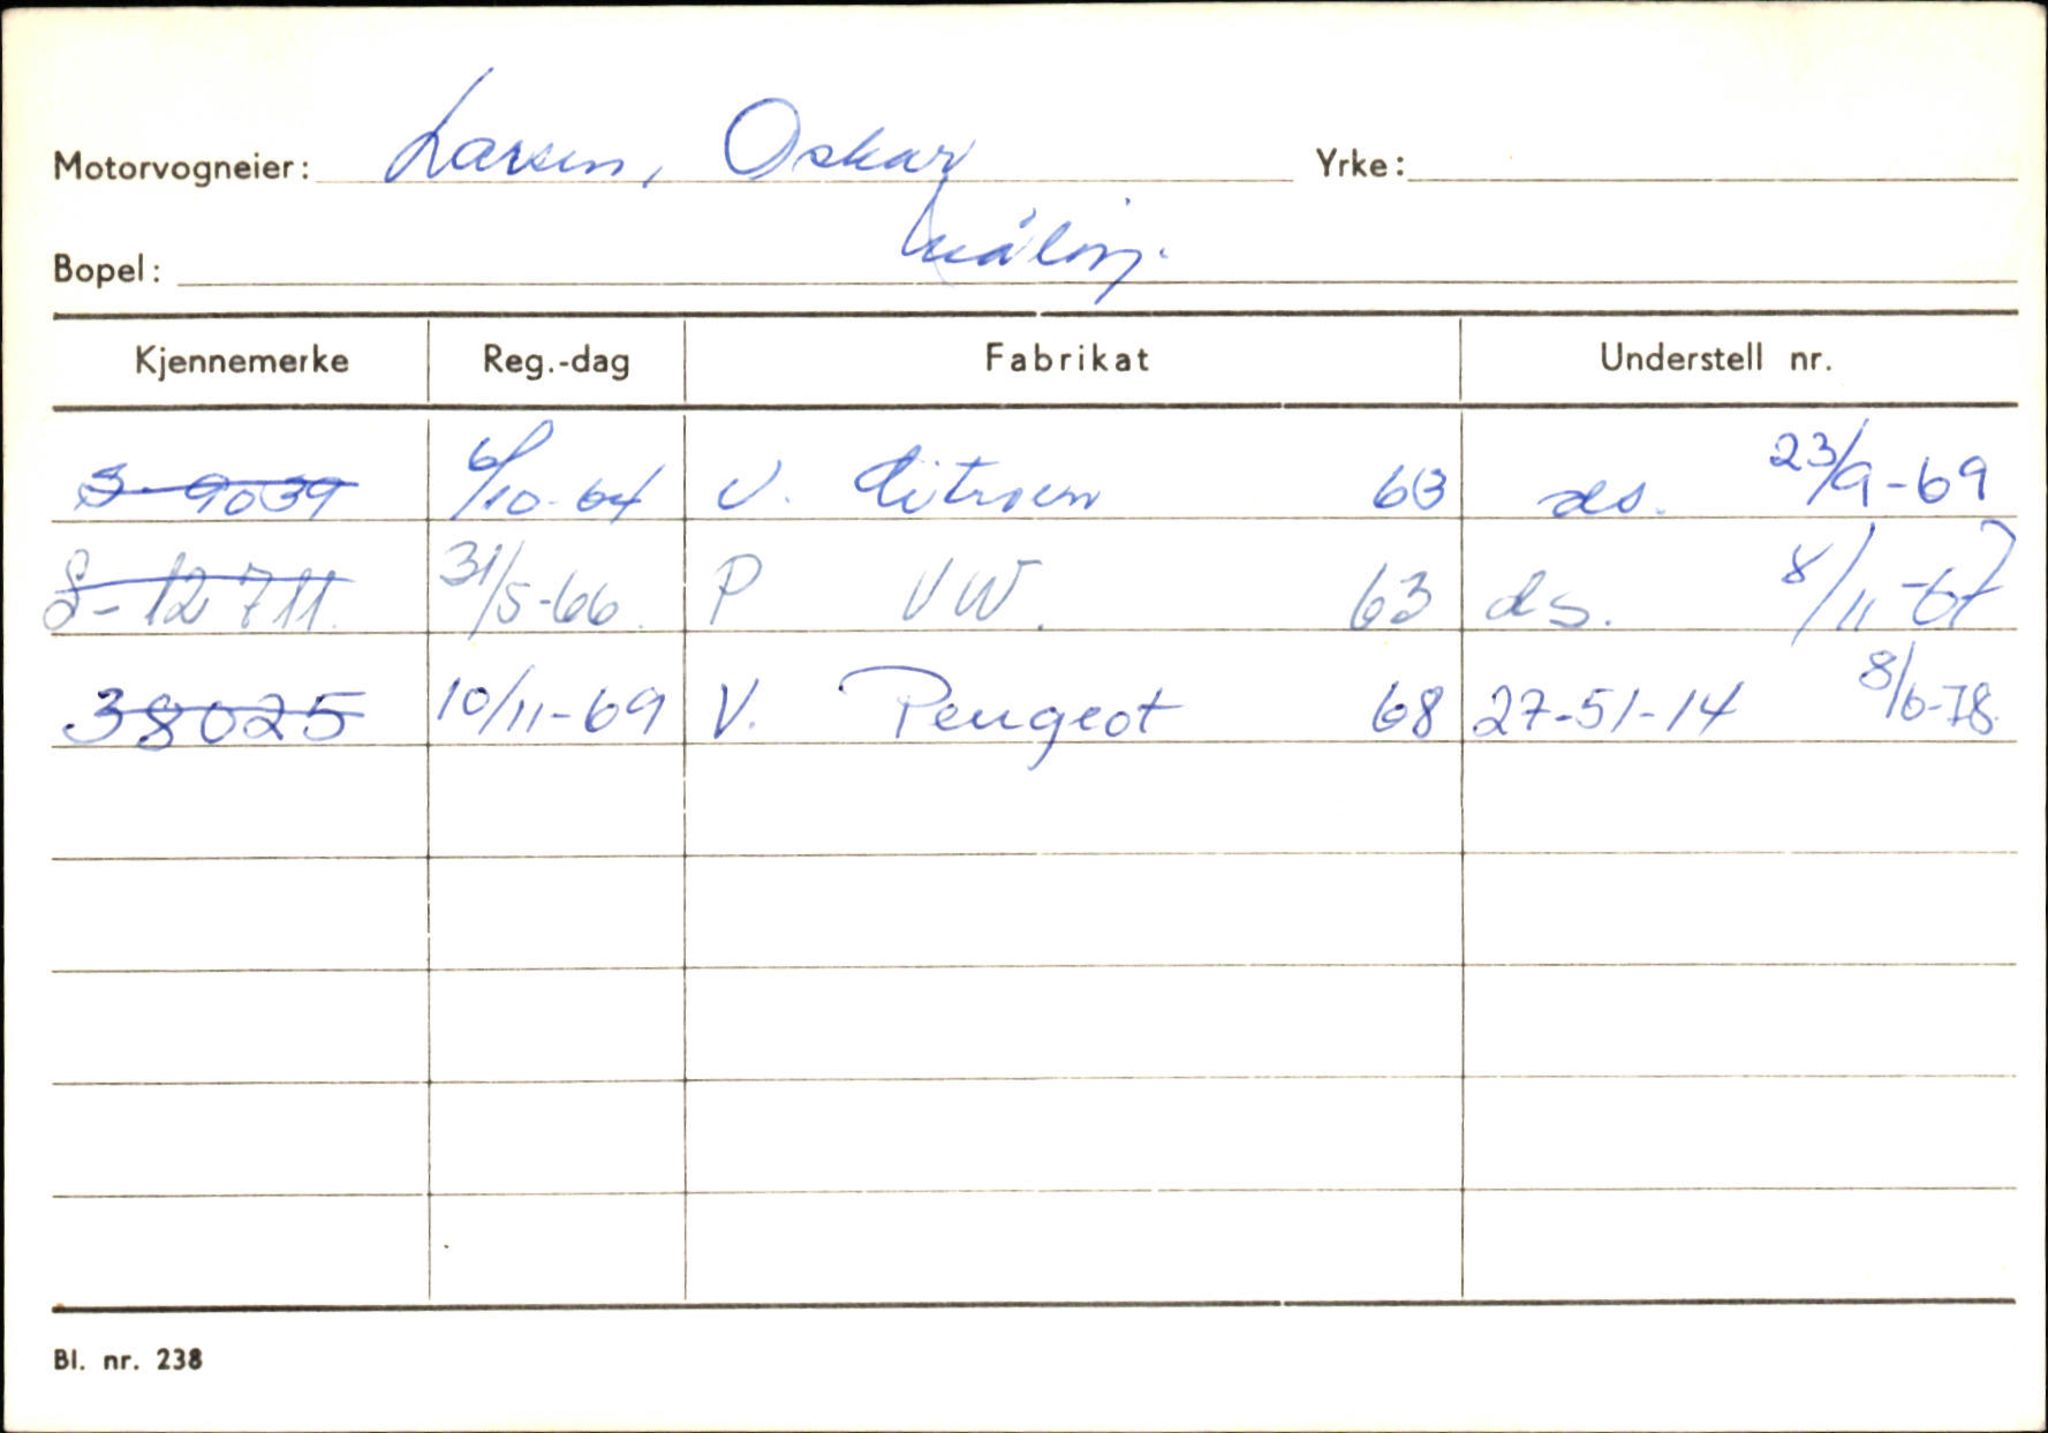 Motorvogneier: Larsen, Oskar Yrke:
Bopel:
Kjennemerke Reg.-dag Fabrikat Understell nr.
S-9039 6/10-64 V. Citroen 63 ds. 23/9-69
S-12711. 31/5-66. P VW. 63 ds. 8/11-67
38025 10/11-69 V. Peugeot 68 27-51-14 8/6-78
Bl. nr. 238